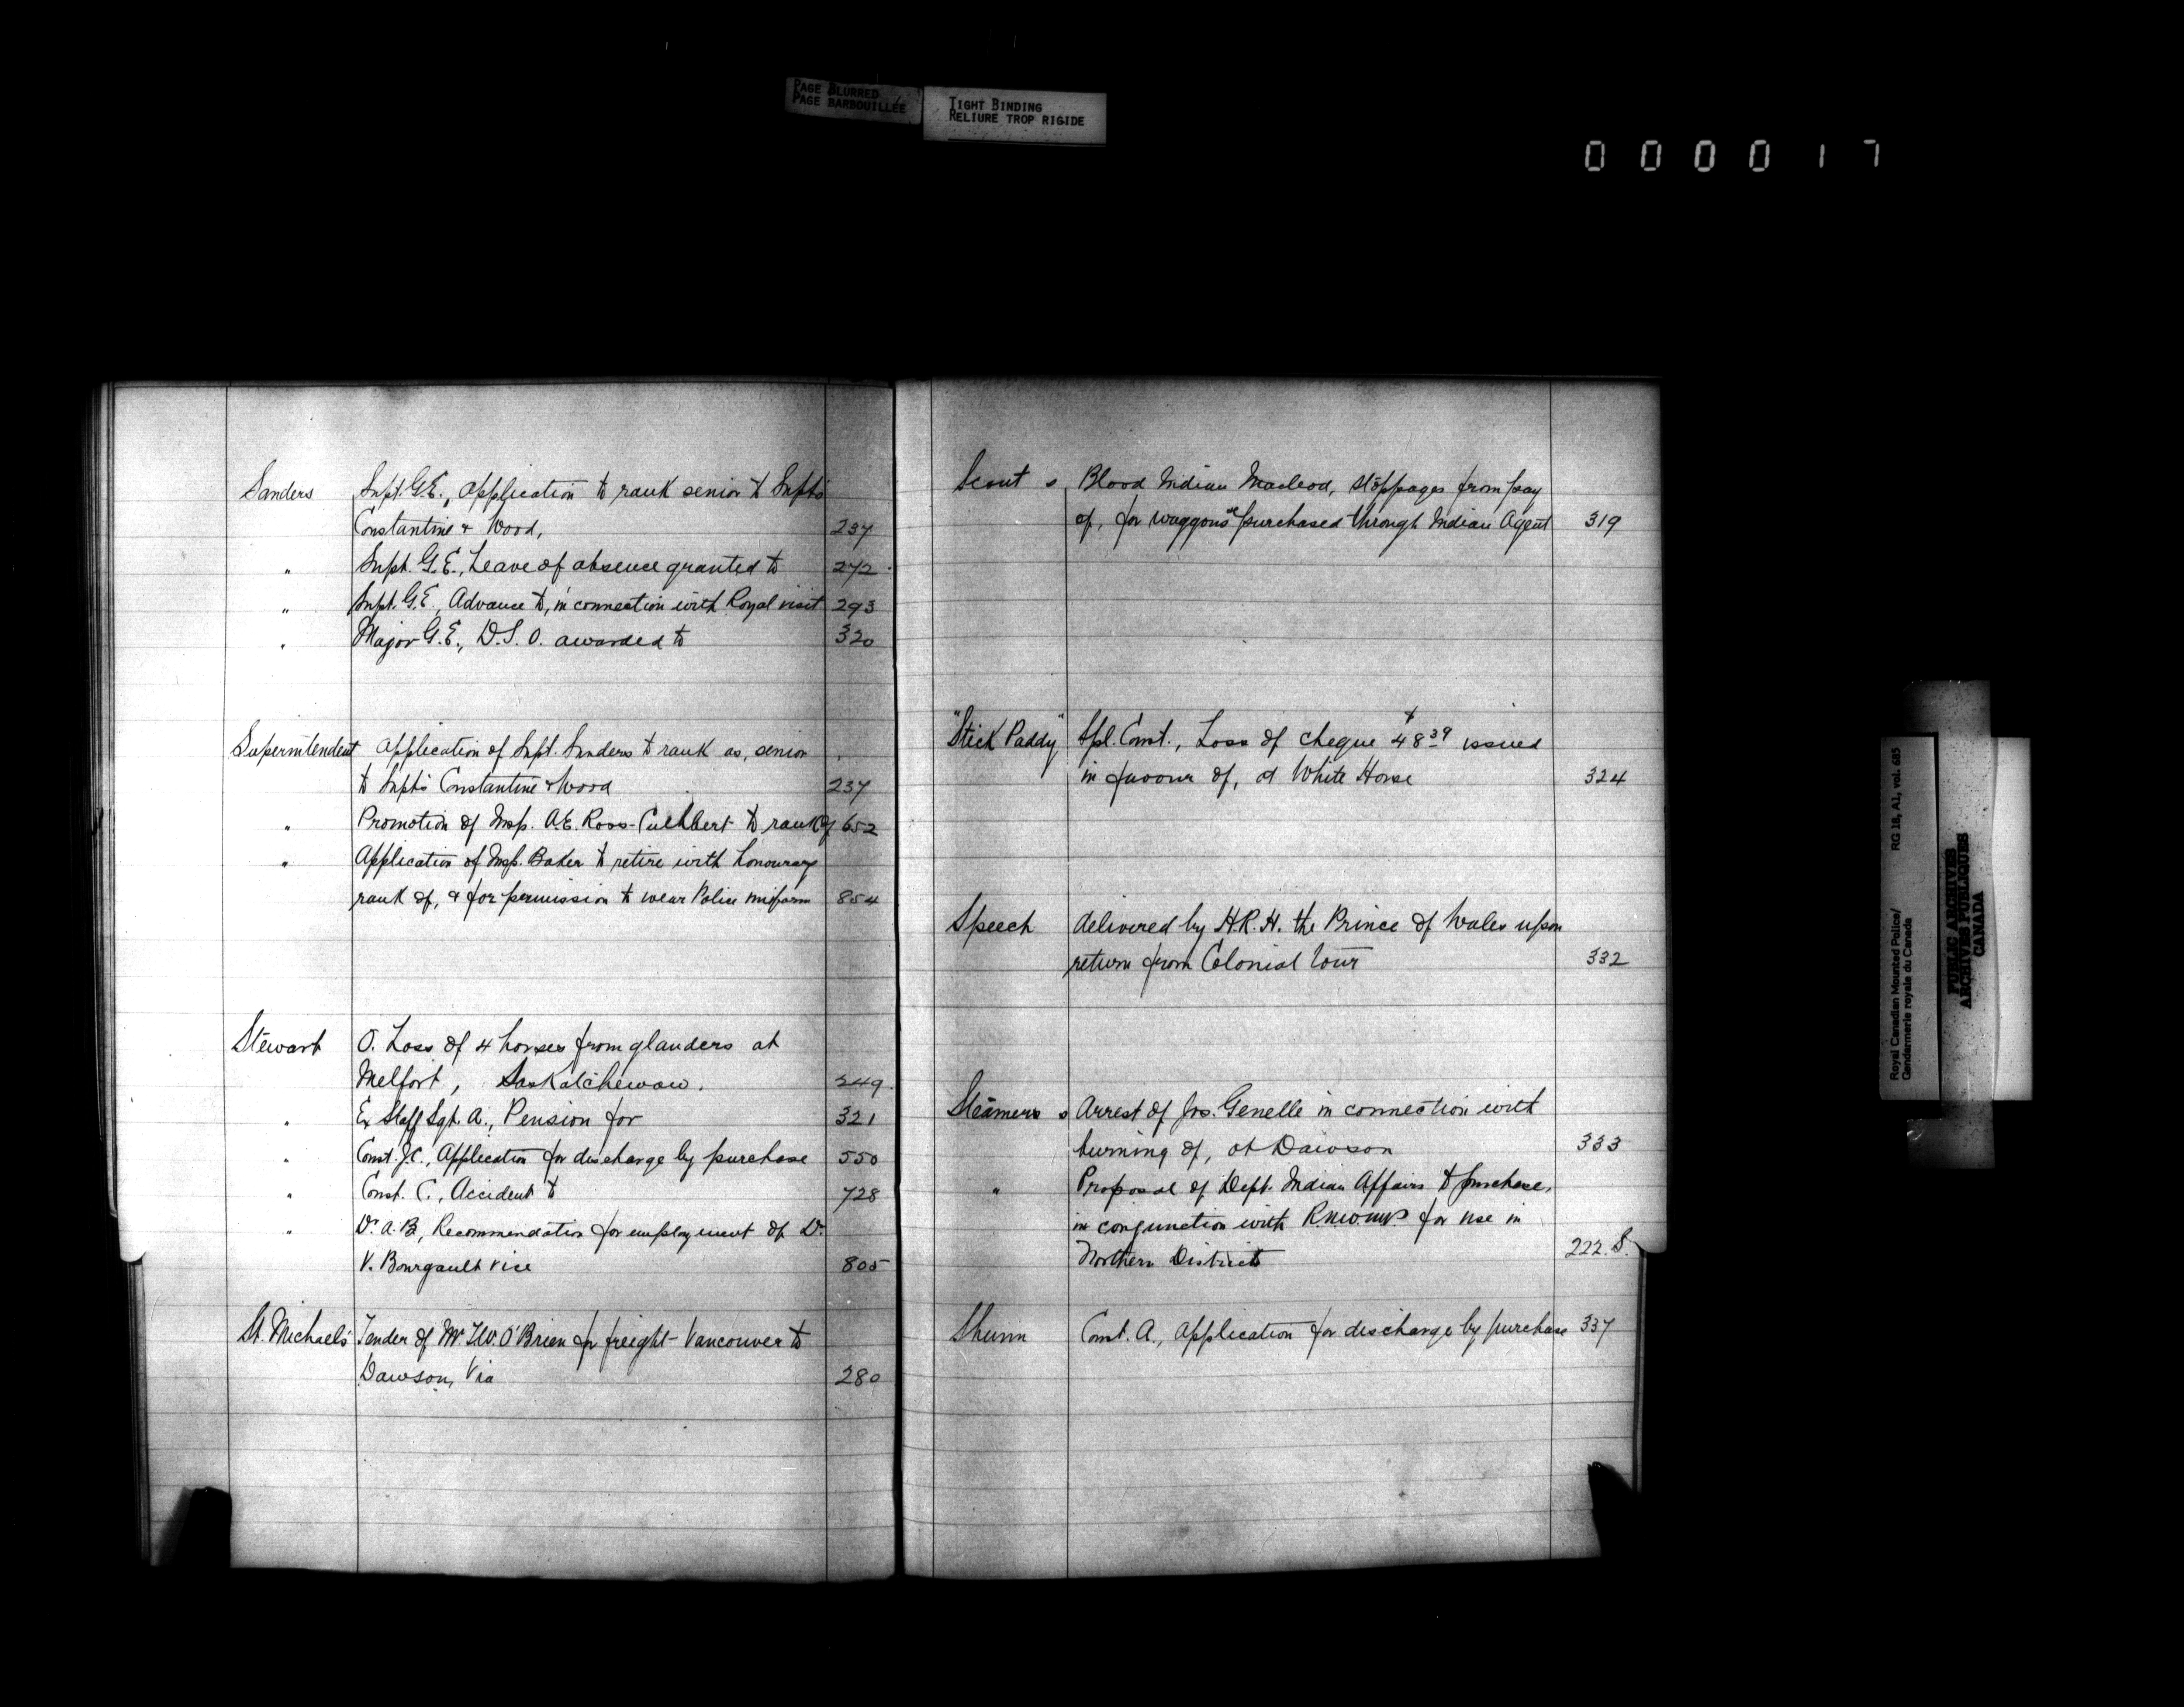 PAGE BLURRED
PAGE BARBOUILLÉE
TIGHT BINDING
RELIURE TROP RIGIDE
000017
Sanders Supt. G.E., Application to rank senior to Supts
Constantine & Wood, 237
" Supt. G.E., Leave of absence granted to 272
" Supt. G.E., Advance to, in connection with Royal visit 293
" Major G.E., D.S.O. awarded to 320
Superintendent Application of Supt. Sanders to rank as, senior
to Supts Constantine & Wood 237
" Promotion of Insp. A.E. Ross-Cuthbert to rank of 652
" Application of Insp. Baker to retire with honourary
rank of, & for permission to wear Police uniform 854
Stewart O. Loss of 4 horses from glanders at
Melfort, Saskatchewan. 249
" Ex Staff Sgt. A., Pension for 321
" Const. J.C., Application for discharge by purchase 550
" Const. C., Accident to 728
" Dr. A.B., Recommendation for employment of Dr.
V. Bourgault vice 805
St. Michael's Tender of Mr. T.W. O'Brien for freight - Vancouver to
Dawson, Via 280
Scout s Blood Indian Macleod, stoppages from pay
of, for waggons purchased through Indian Agent 319
"Stick Paddy" Spl. Const., Loss of cheque $48.39 issued
in favour of, at White Horse 324
Speech delivered by H.R.H. the Prince of Wales upon
return from Colonial Tour 332
Steamers s Arrest of Jos. Genelle in connection with
burning of, at Dawson 333
" Proposal of Dept. Indian Affairs to purchase,
in conjunction with R.N.W.M.P. for use in
Northern Districts 222.S.
Shunn Const. A., Application for discharge by purchase 337
Royal Canadian Mounted Police/
Gendarmerie royale du Canada
RG 18, A1, vol. 685
PUBLIC ARCHIVES
ARCHIVES PUBLIQUES
CANADA